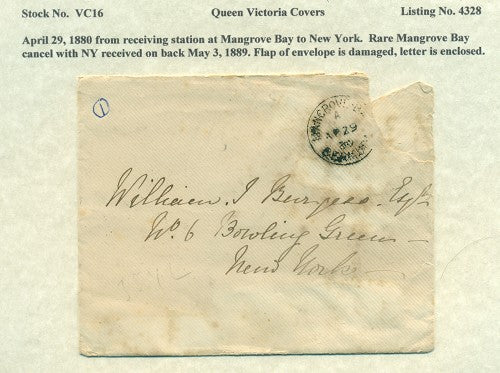 Stock No. VC16 Queen Victoria Covers Listing No. 4328
April 29, 1880 from receiving station at Mangrove Bay to New York. Rare Mangrove Bay
cancel with NY received on back May 3, 1889. Flap of envelope is damaged, letter is enclosed.
1
MANGROVE
A
AP 29
80
William J Burgess Esqre
No. 6 Bowling Green
New York